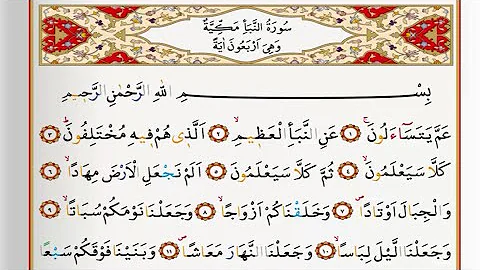 سُورَةُ النَّبَأِ مَكِّيَّةٌ
وَهِيَ اَرْبَعُونَ اٰيَةً
بِسْمِ اللّٰهِ الرَّحْمٰنِ الرَّحِيمِ
عَمَّ يَتَسَٓاءَلُونَۚ ﴿١﴾ عَنِ النَّبَأِ الْعَظ۪يمِۙ ﴿٢﴾ اَلَّذ۪ي هُمْ ف۪يهِ مُخْتَلِفُونَۜ ﴿٣﴾
كَلَّا سَيَعْلَمُونَۙ ﴿٤﴾ ثُمَّ كَلَّا سَيَعْلَمُونَ ﴿٥﴾ اَلَمْ نَجْعَلِ الْاَرْضَ مِهَادًاۙ ﴿٦﴾
وَالْجِبَالَ اَوْتَادًاۖ ﴿٧﴾ وَخَلَقْنَاكُمْ اَزْوَاجًاۙ ﴿٨﴾ وَجَعَلْنَا نَوْمَكُمْ سُبَاتًاۙ ﴿٩﴾
وَجَعَلْنَا الَّيْلَ لِبَاسًاۙ ﴿١٠﴾ وَجَعَلْنَا النَّهَارَ مَعَاشًاۖ ﴿١١﴾ وَبَنَيْنَا فَوْقَكُمْ سَبْعًا